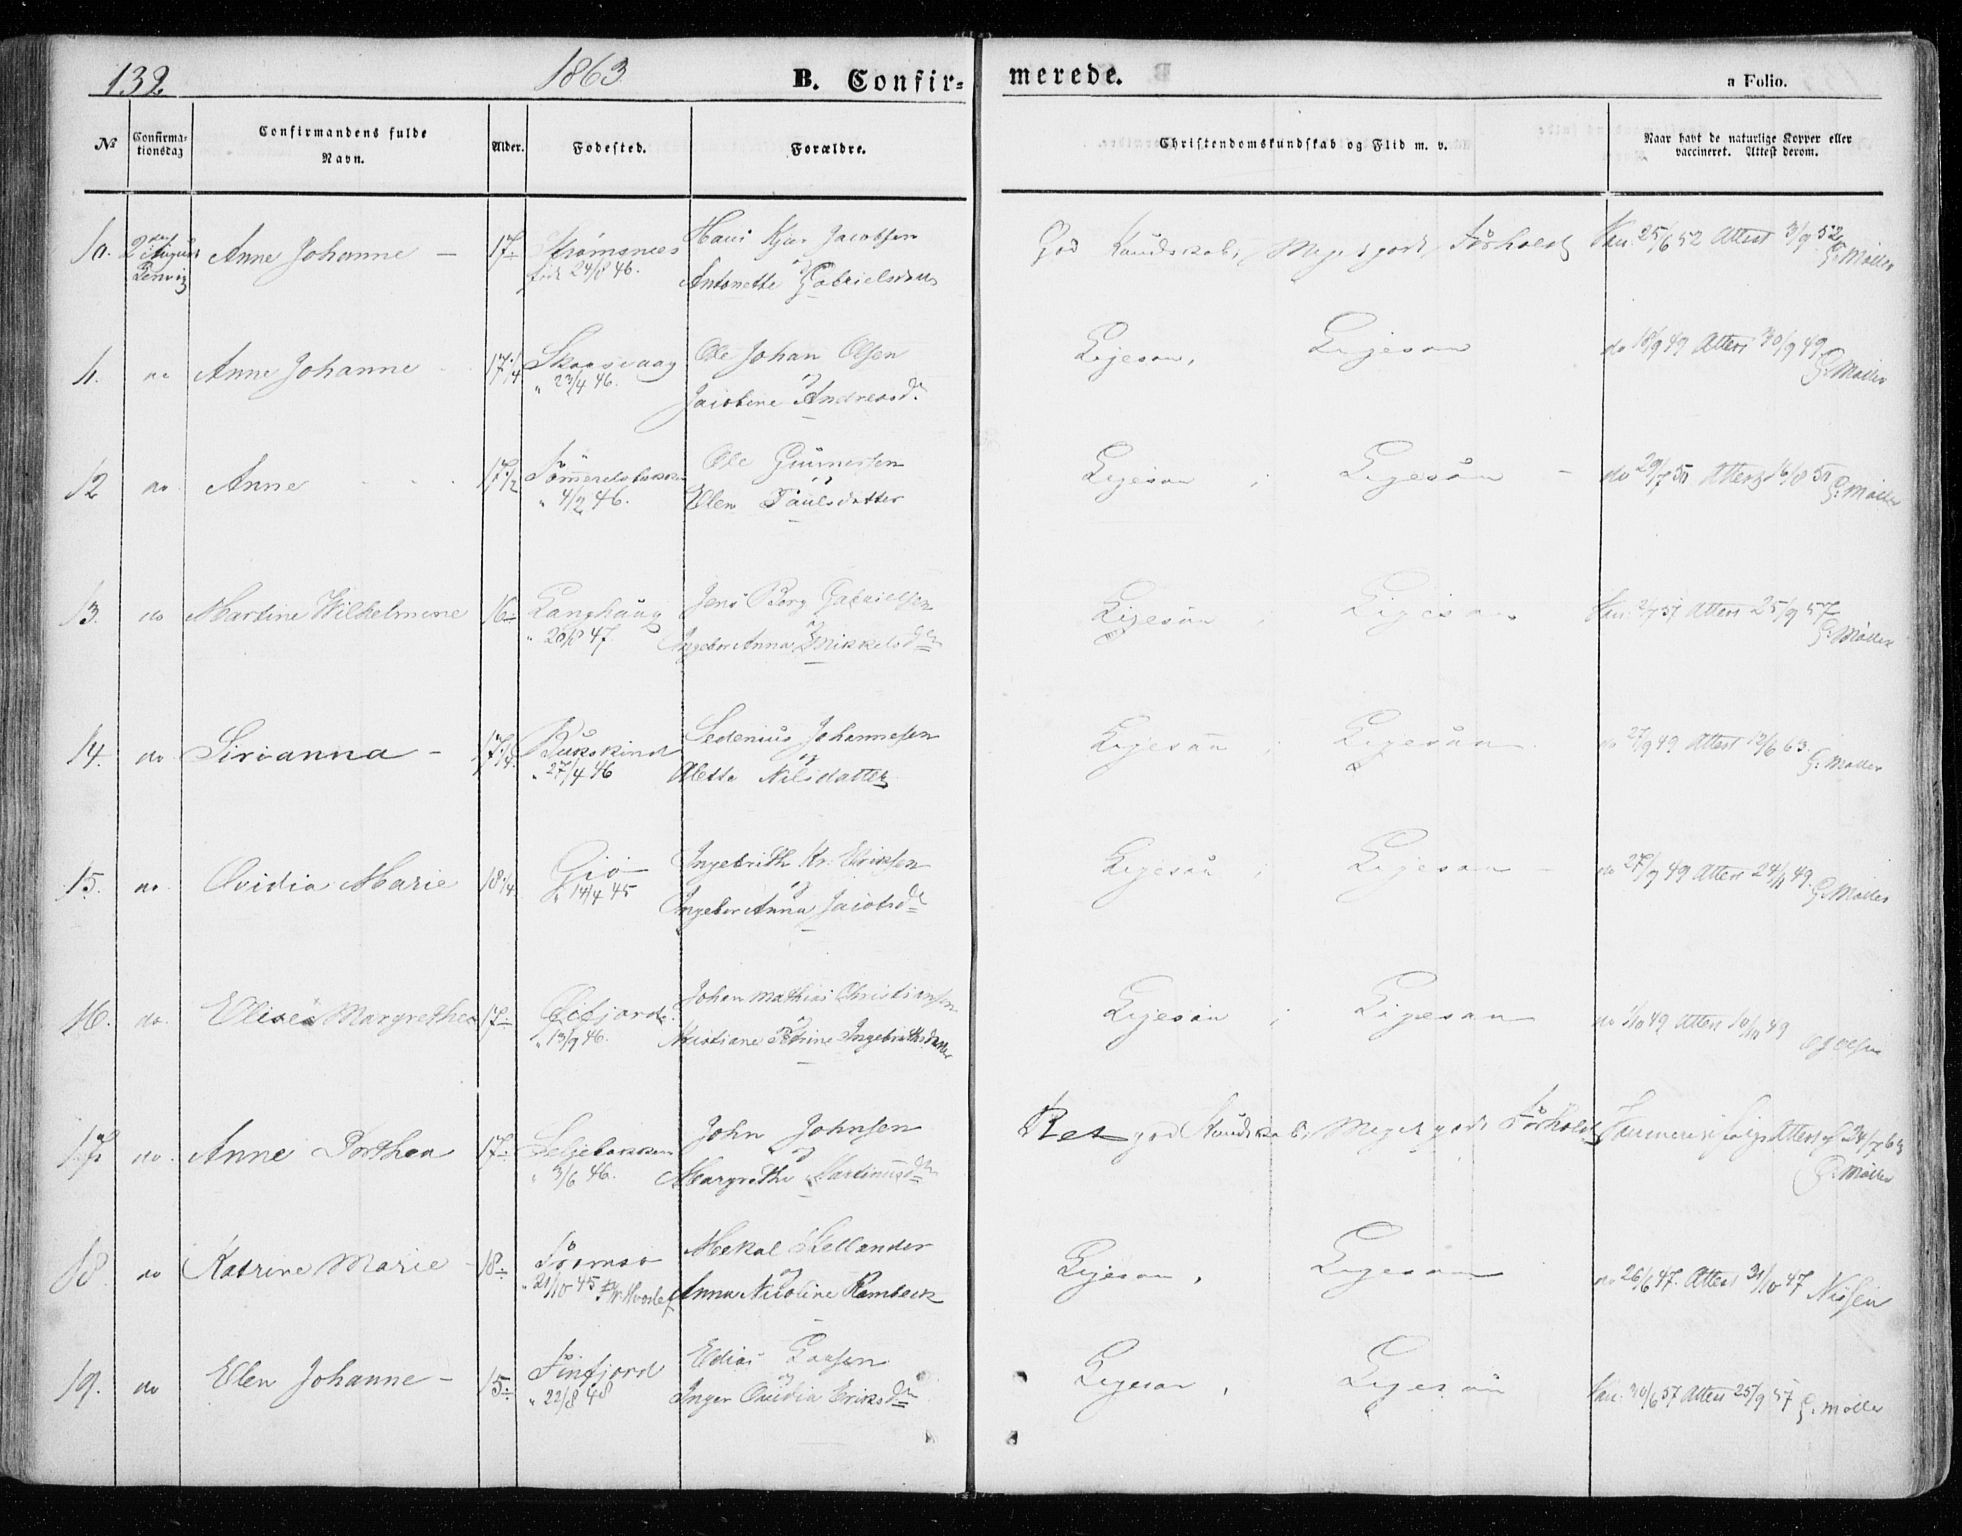 132.
1863
B. Confir=
merede.
a Folio.
№
Confirma-
tionsdag
Confirmandens fulde
Navn.
Alder.
Fødested.
Forældre.
Christendomskundskab og Flid m. v.
Naar havt de naturlige Kopper eller
vaccineret. Attest derom.
10. 2den August Anne Johanne — 17 Strømsnes Hans Kjær Jacobsen God Kundskab, Meget godt Forhold Vac. 25/6 52 Attest 3/9 52
født 24/8 46. og Antonette Gabrielsdatter G. Møller
11. do Anne Johanne 17 1/4 Ole Johan Olsen Ligesaa, Ligesaa do 18/9 49 Attest 30/9 49
" 23/4 46. og Jacobine Andreasd. G. Møller
12 do Anne 17 1/2 Ole Gunnersen Ligesaa , Ligesaa — do 29/7 50 Attest 16/8 50
" 4/2 46. og Elen Paulsdatter G. Møller
13. do Martine Wilhelmine 16 Langhaug Jens Berg Gabrielsen Ligesaa , Ligesaa Vac. 2/7 57 Attest 25/9 57
" 20/8 47. og Ingebor Anna Mikkelsd. G. Møller
14. do Sirianna — 17 1/4 Bukskind Sedenius Johannesen Ligesaa Ligesaa do 27/9 49 Attest 13/6 63.
" 27/4 46 og Alette Nilsdatter G. Møller
15. do Ovidia Marie 18 1/4 Giø Ingebrith Kr. Eriksen Ligesaa , Ligesaa — do 27/9 49 Attest 24/11 49.
" 14/4 45 og Ingebor Anna Jacobsd. G. Møller
16. do. Elisea Margrethe 17 Johan Mathias Christiansen Ligesaa , Ligesaa do 1/10 49 Attest 10/10 49
" 13/9 46. og Kristiane Petrine Ingebrithsdatter
17. do. Anne Dorthea 17 Seljebakken John Johnsen Ret god Kundskab, Meget godt Forhold Attest af 24/7 63
" 3/6 46. og Margrethe Martinusd. G. Møller
18 do Katrine Marie — 18 Tromsø Mekal Hellander Ligesaa , Ligesaa do 26/6 47. Attest 31/10 47 Nissen
" 21/10 45 og Anna Nicoline Rambeck
19. do Elen Johanne — 15 Finfjord Edias Ligesaa , Ligesaa Vac. 30/6 57 Attest 25/9 57 G. Møller
" 22/8 48 og Inger Ovidia Eriksd.